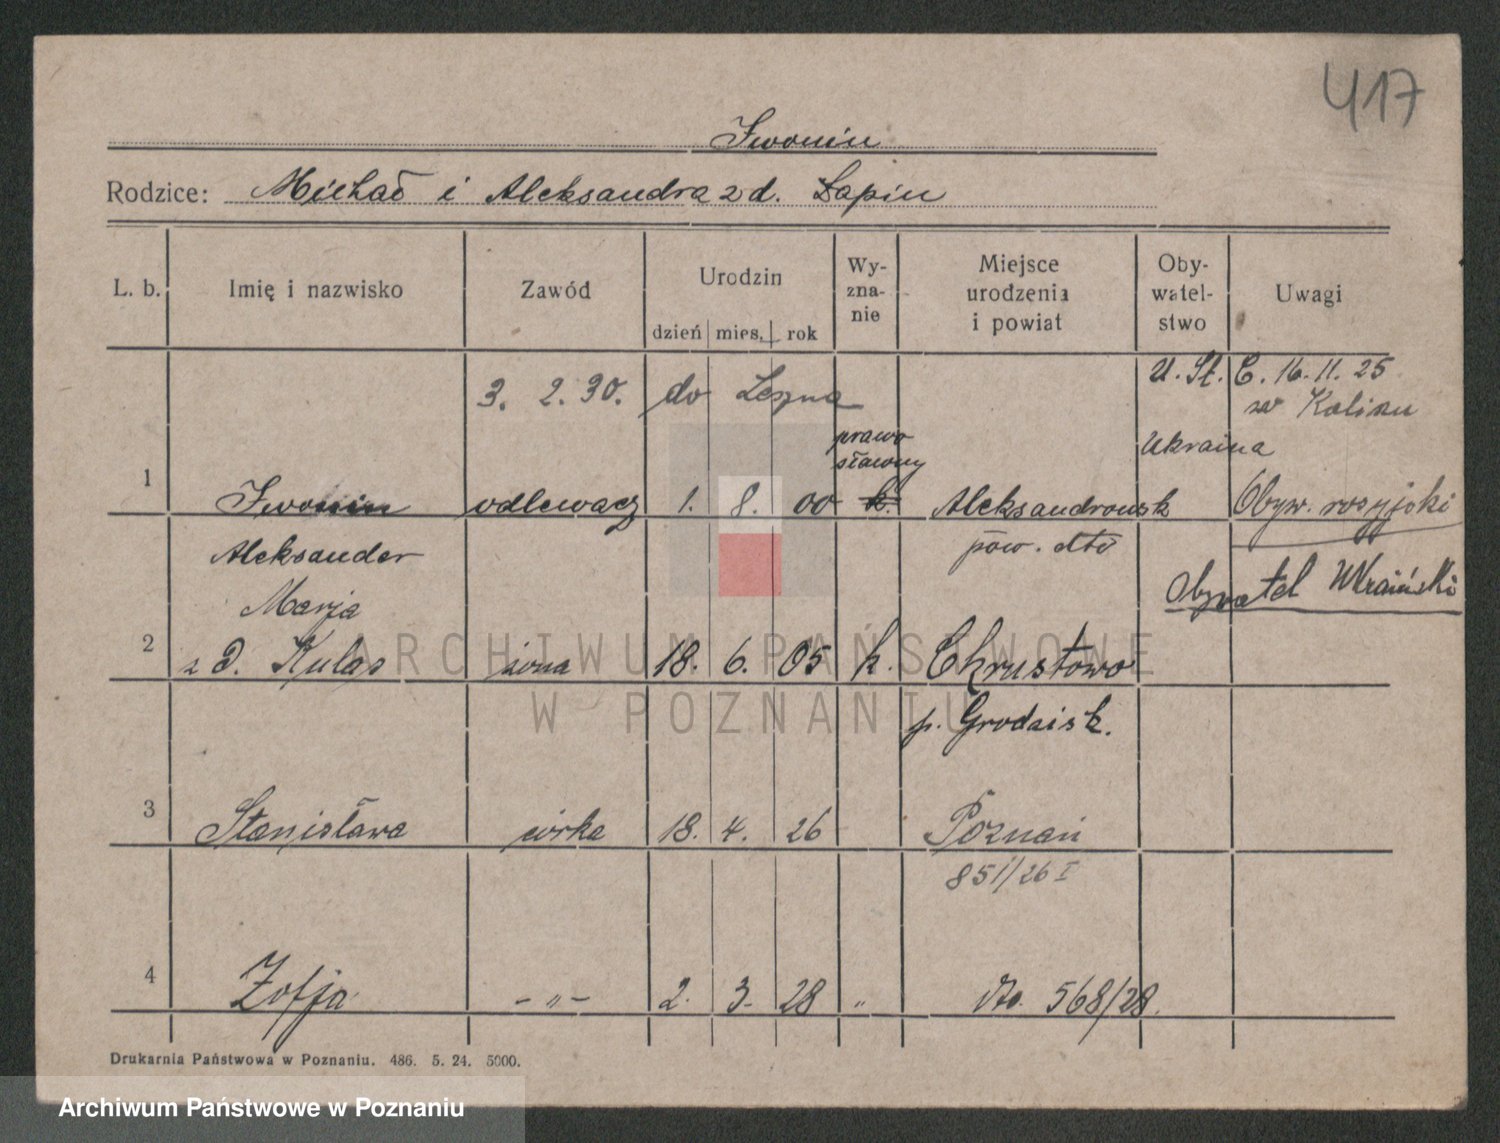 417
Iwonin
Rodzice: Michał i Aleksandra z d. Łapin
L. b. Imię i nazwisko Zawód Urodzin dzień mies. rok Wy-zna-nie Miejsce urodzenia i powiat Oby-watel-stwo Uwagi
3. 2. 30. do Leszna U. St. C. 16. 11. 25
w Kaliszu
prawo
sławny Ukraina
1 Iwonin odlewacz 1. 8. 00 k. Aleksandrowsk Obyw. rosyjski
Aleksander pow. dtto
Obywatel Ukraiński
Marja
2 z d. Kulas żona 18. 6. 05 k. Chrustowo
p. Grodzisk.
3 Stanisława córka 18. 4. 26 Poznań
851/26 I
4 Zofja - „ - 2. 3. 28 „ dto. 568/28.
Drukarnia Państwowa w Poznaniu. 486. 5. 24. 5000.
ARCHIWUM PAŃSTWOWE
W POZNANIU
Archiwum Państwowe w Poznaniu